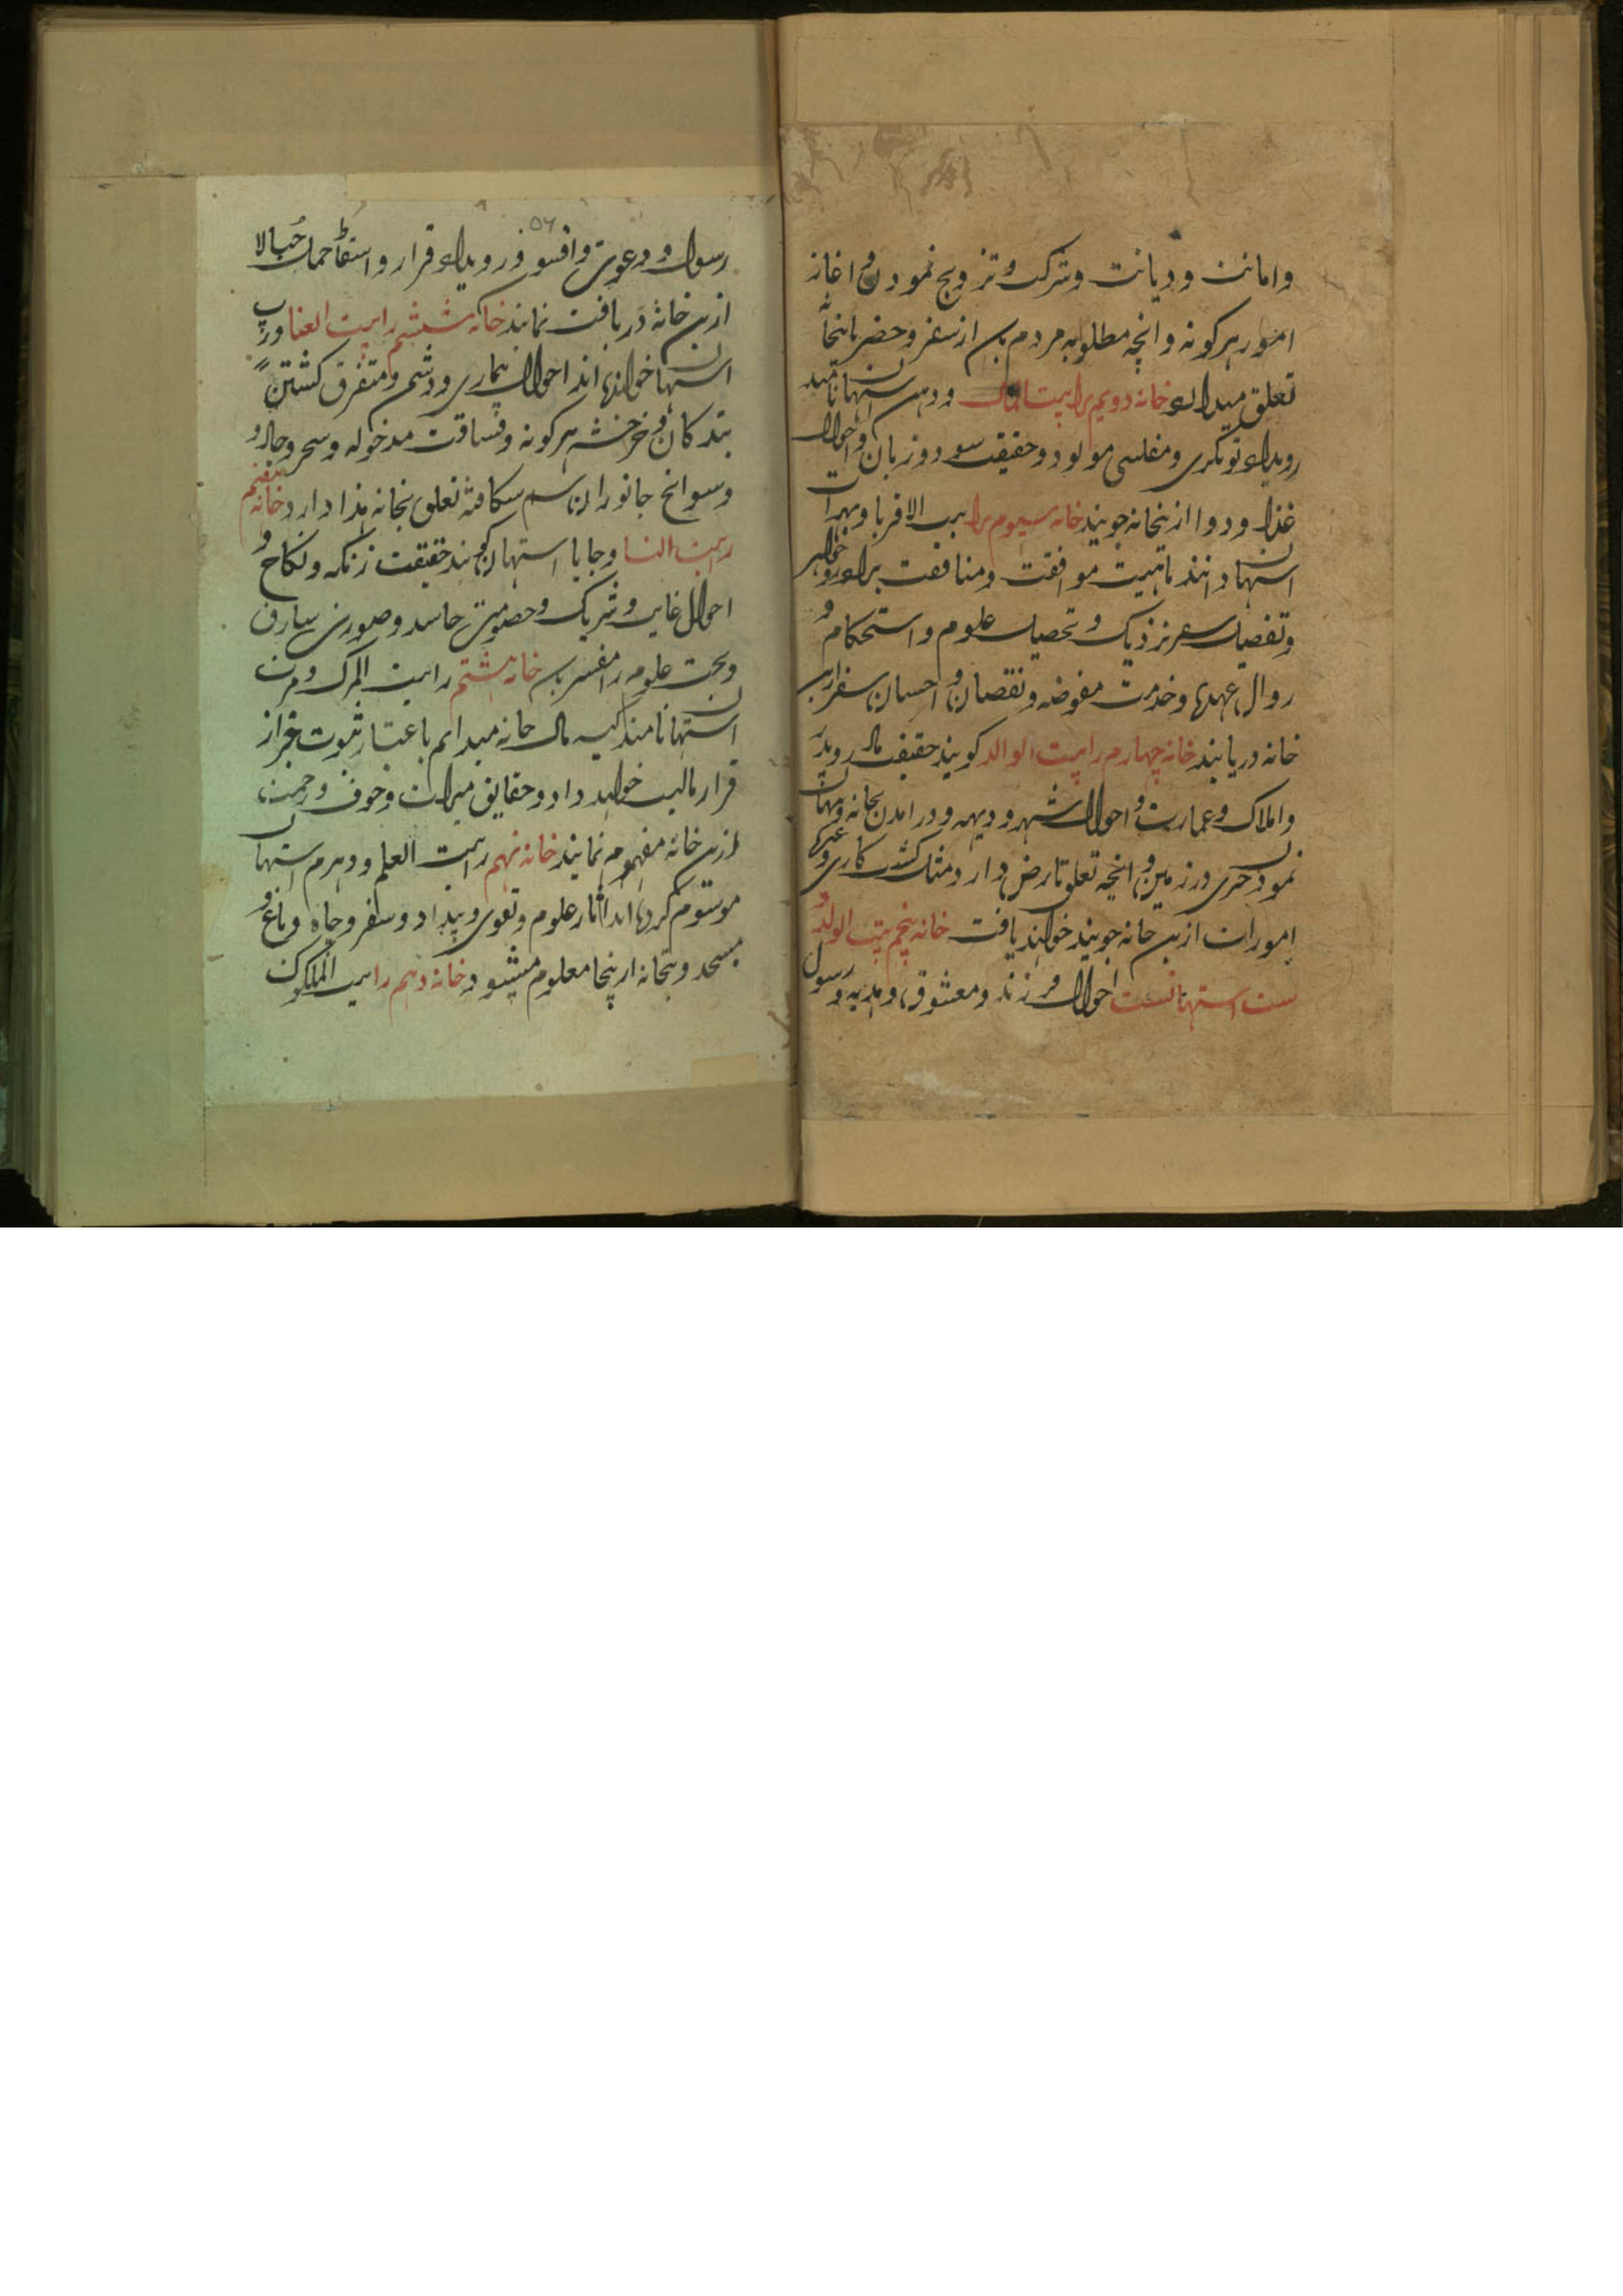 وامانت ودیانت وشرکت وتزویج نمودن و اغاز
امور هرکونه وانچه مطلوبه مردم بان از سفر وحضر باینخانه
تعلق میدارد خانه دویم را بیت المال ودهن استهان نامند
رویداد تونکری ومفلسی مولود وحقیقت سود وزیان واحوال
غذا ودوا ازینخانه جویند خانه سیوم را بیت الاقربا وبهرات
استهان دانند ماهیت موافقت ومنافقت برادر وخواهر
وتفصیل سعر نزدیک وتحصیل علوم واستحکام و
زوال عهدها وخدمت مفوضه ونقصان و احسان سفر ازین
خانه دریابند خانه چهارم را بیت الوالد کویند حقیقت مادر وپدر
واملاک وعمارت و احوال شهر ودیهه ودرامدن بخانه ومهمان
نمودن چیزی در زمین و انچه تعلق بارض دارد مثل کشت کاری وغیره
امورات ازین خانه جویند خواهند یافت خانه پنجم بیت الولد و
ست استهانست احوال فرزند ومعشوق وهدیه ورسول
۵۶
رسول ودعوت وافسون ورویداد قرار واسقاط حمل حبالا
ازین خانه دریافت نمایند خانه ششم را بیت العنا ورپ
استهان خوانده اند احوال بیماری ودشمن ومتفرق کشتن
بندکان و خرخشه هرکونه وفساقت مدخوله وسحر وجادو
وسوانح جانوران سم شکافته تعلق بخانه هذا دارد خانه هفتم
را بیت النسا وجایا استهان کویند حقیقت زنکه ونکاح و
احوال غایب وشریک وخصومت حاسد وصورت سارق
وبحث علوم را مفسر بان خانه هشتم را بیت المرک ومرت
استهان نامند کیسه مال خانه میدانم باعتبار ثبوت غیر از
قرار مالیت خواهد داد وحقایق میراث وخوف ورحمت
ازین خانه مفهوم نمایند خانه نهم را بیت العلم ودهرم استهان
موسوم کرده اند اثار علوم وتقوی وبیداد وسفر وچاه وباغ و
مسجد وبتخانه ازینجا معلوم میشود خانه دهم را بیت الملکوک